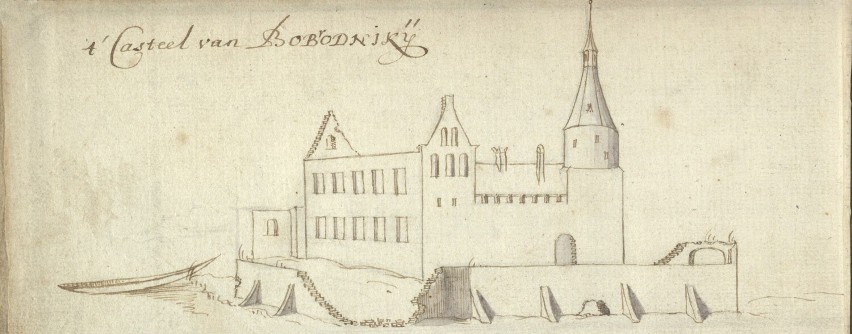 t' Casteel van BOBrODNIKÿ